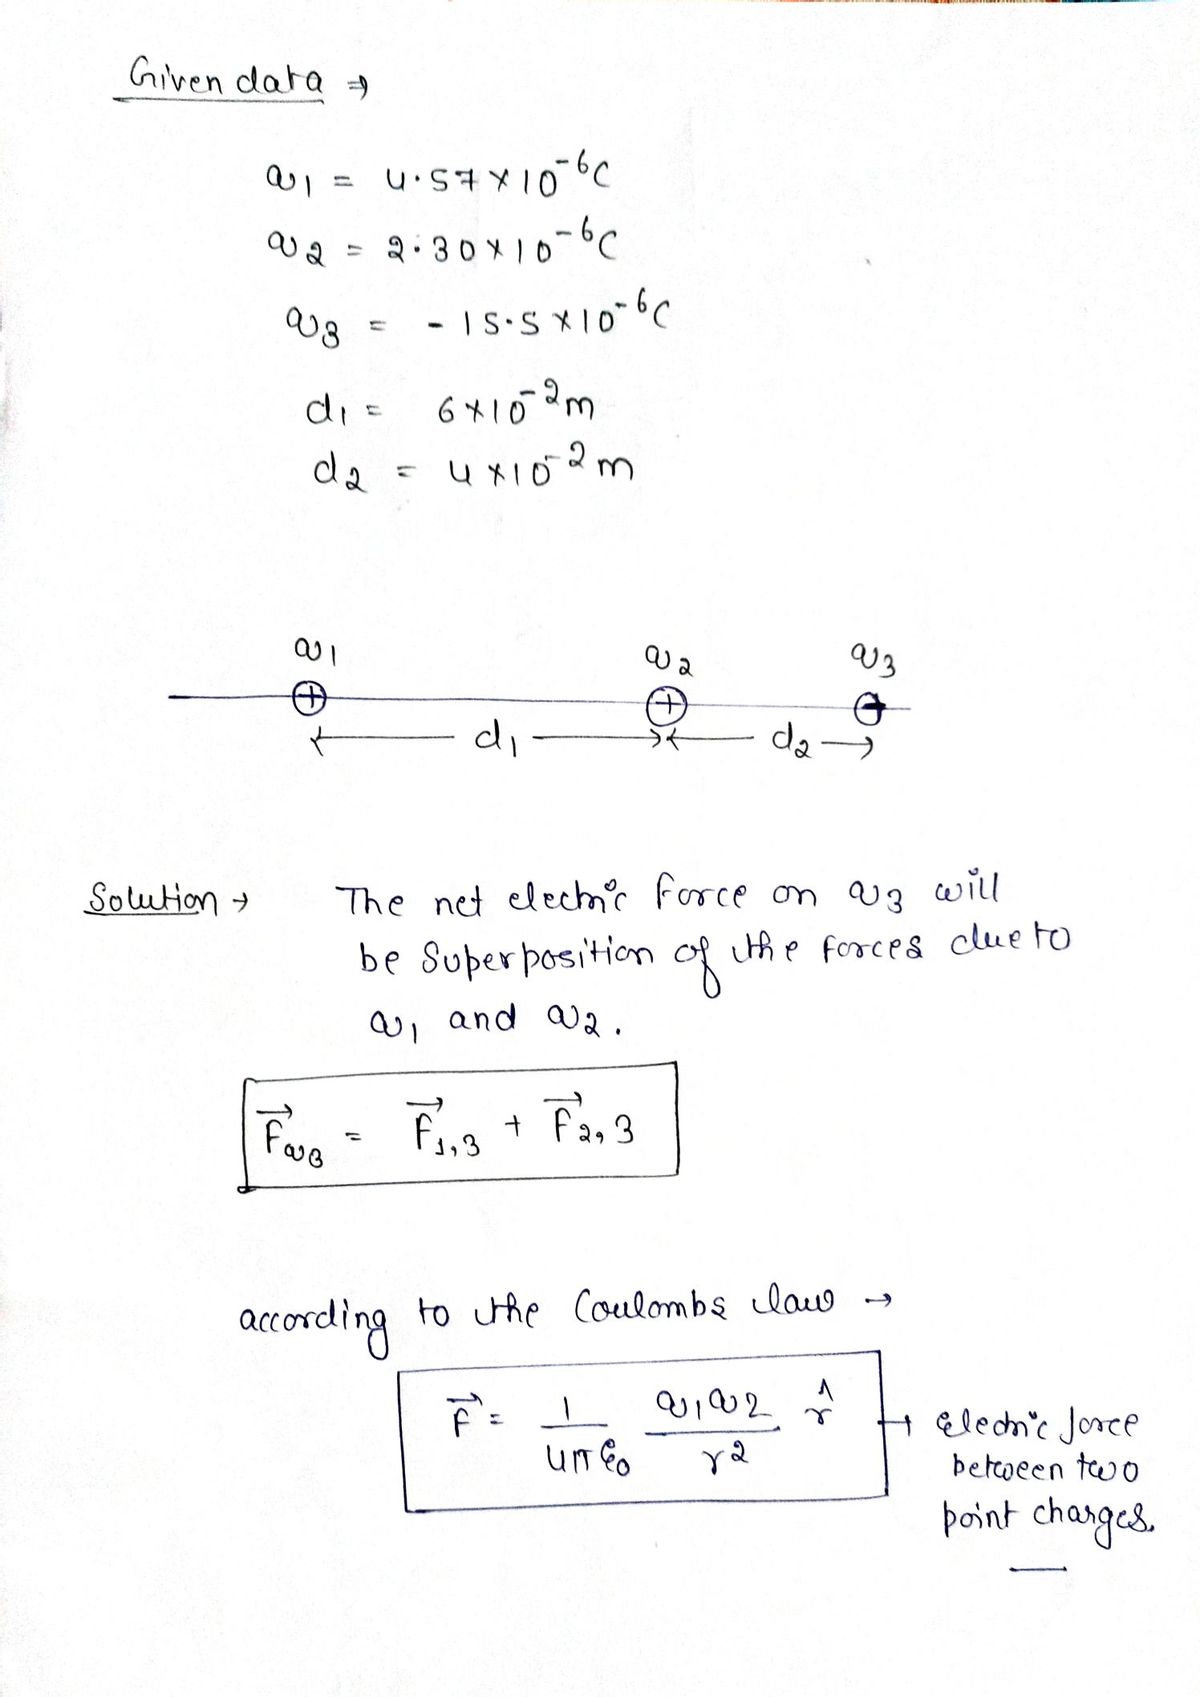 Given data ⇒
q1 = 4.57 × 10^-6 C
q2 = 2.30 × 10^-6 C
q3 = - 15.5 × 10^-6 C
d1 = 6 × 10^-2 m
d2 = 4 × 10^-2 m
q1 q2 q3
+ + -
d1 d2
Solution → The net electric force on q3 will
be superposition of the forces due to
q1 and q2.
F⃗q3 = F⃗1,3 + F⃗2,3
according to the Coulombs law →
F⃗ = 1/4πε0 q1q2/r^2 r̂ → Electric force
between two
point charges.